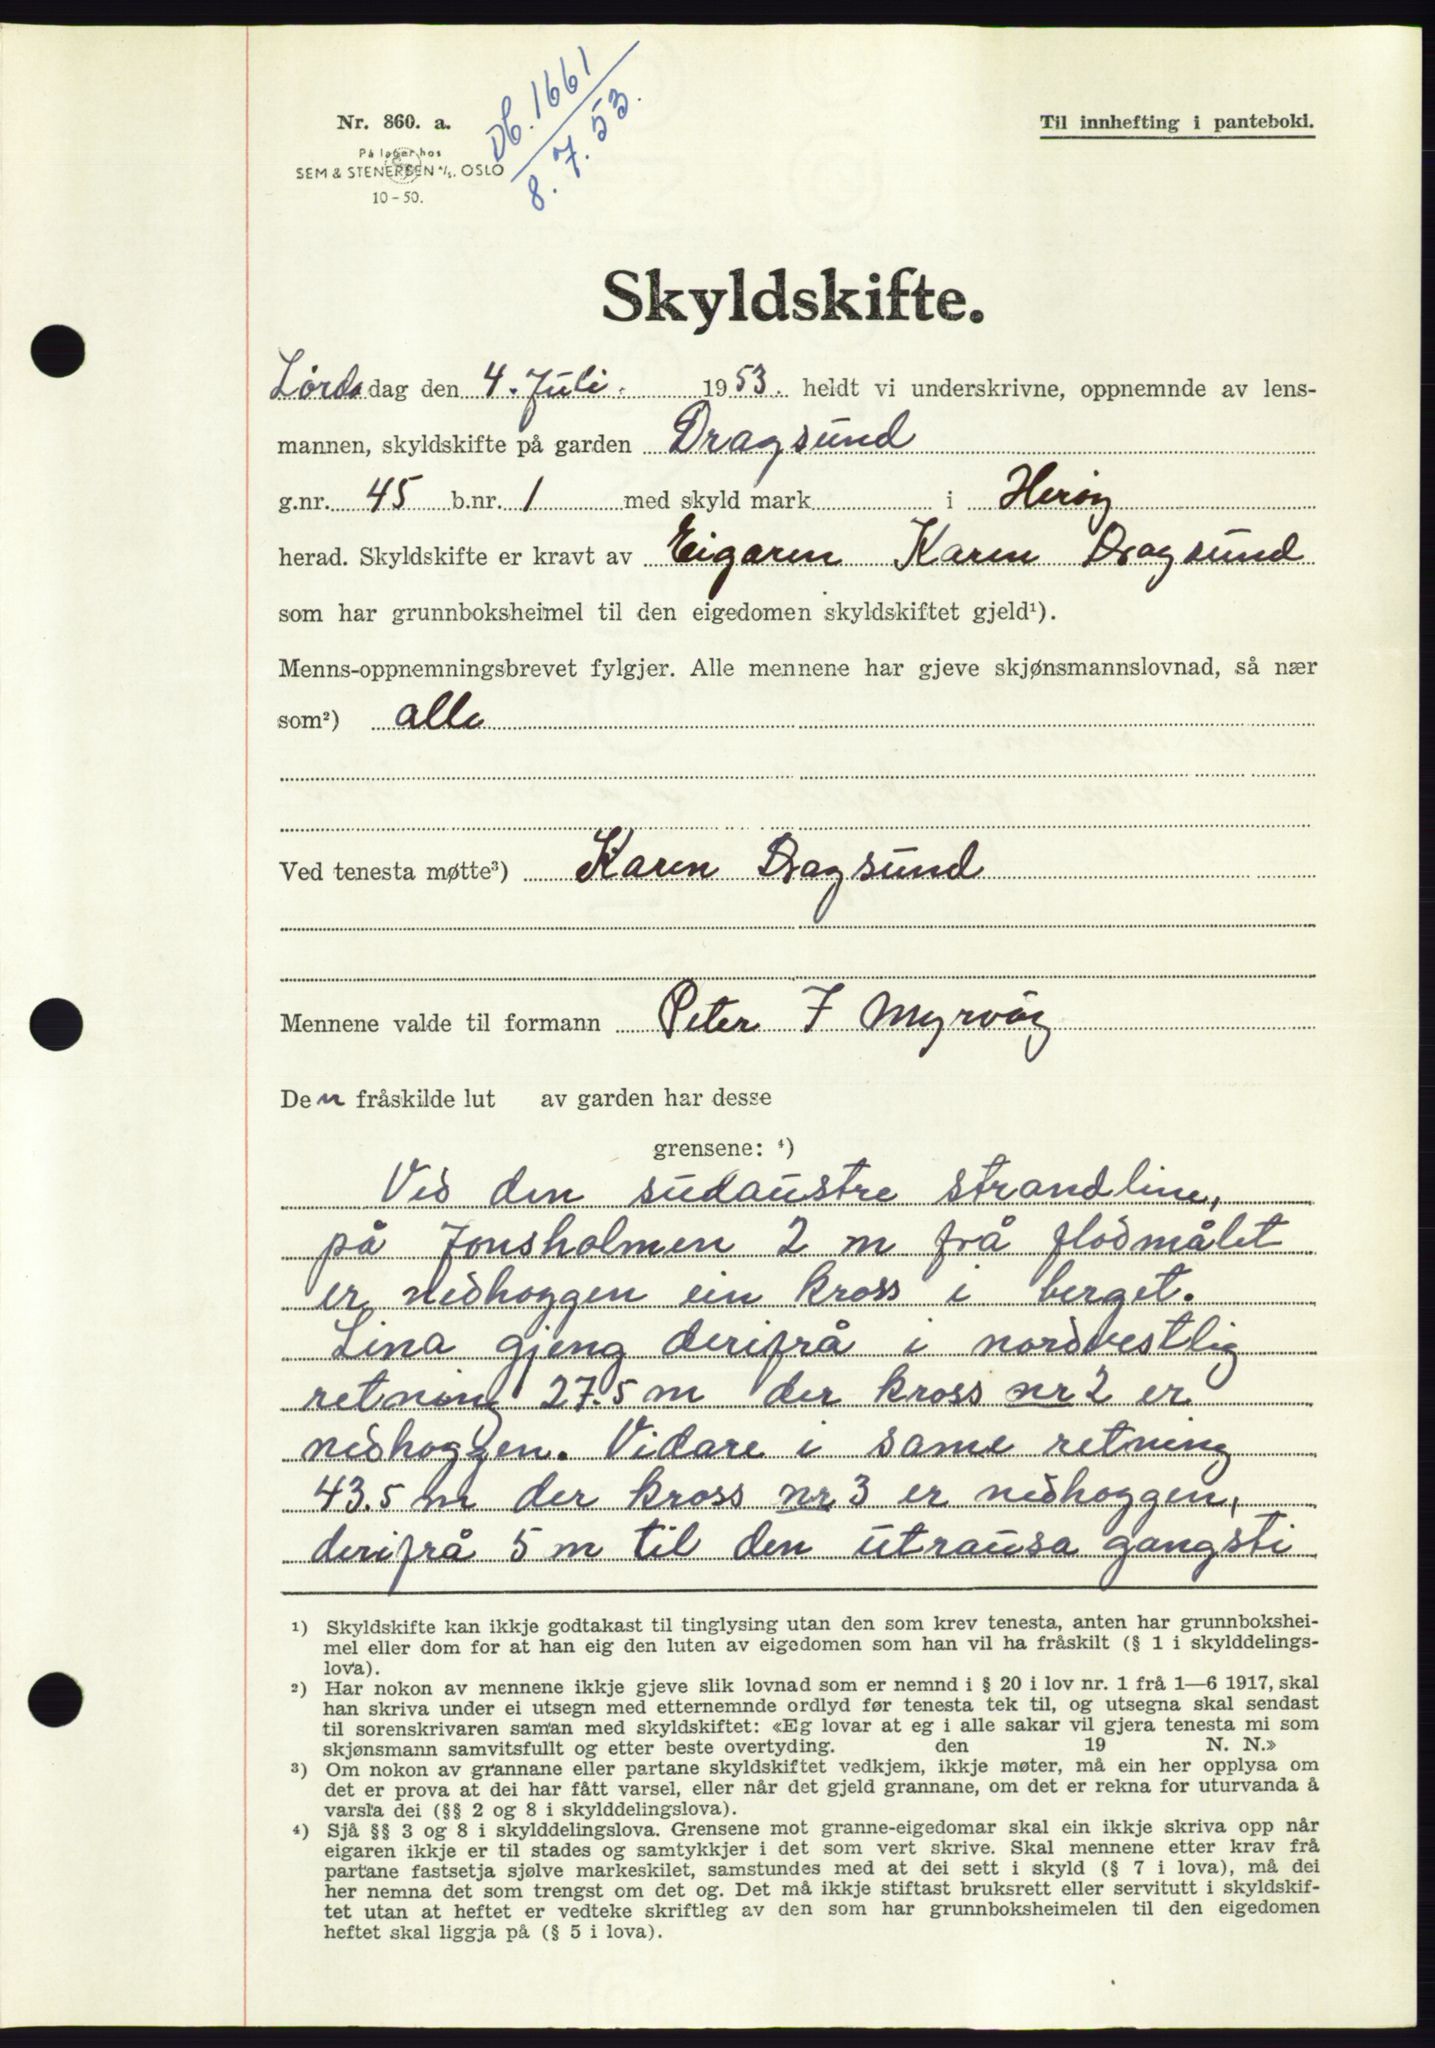 Db. 1661
8. 7. 53.
Nr. 860. a.
På lager hos
SEM & STENERSEN A/S. OSLO
10-50.
Til innhefting i panteboki.
Skyldskifte.
Lørdsdag den 4. Juli. 1953. heldt vi underskrivne, oppnemnde av lens-
mannen, skyldskifte på garden Dragsund
g.nr. 45 b.nr. 1 med skyld mark i Herøy
herad. Skyldskifte er kravt av Eigaren Karen Dragsund
som har grunnboksheimel til den eigedomen skyldskiftet gjeld¹).
Menns-oppnemningsbrevet fylgjer. Alle mennene har gjeve skjønsmannslovnad, så nær
som²) alle
Ved tenesta møtte³) Karen Dragsund
Mennene valde til formann Peter J Myrvåg
Den fråskilde lut av garden har desse
grensene: ⁴)
Ved den sudaustre strandline,
på Jonsholmen 2 m frå flodmålet
er nedhoggen ein kross i berget.
Lina gjeng derifrå i nordvestlig
retning 27.5 m der kross nr 2 er
nedhoggen. Vidare i same retning
43.5 m der kross nr 3 er nedhoggen,
derifrå 5 m til den utrausa gangsti
¹) Skyldskifte kan ikkje godtakast til tinglysing utan den som krev tenesta, anten har grunnbokshei-
mel eller dom for at han eig den luten av eigedomen som han vil ha fråskilt (§ 1 i skylddelings-
lova).
²) Har nokon av mennene ikkje gjeve slik lovnad som er nemnd i § 20 i lov nr. 1 frå 1—6 1917, skal
han skriva under ei utsegn med etternemnde ordlyd før tenesta tek til, og utsegna skal sendast
til sorenskrivaren saman med skyldskiftet: «Eg lovar at eg i alle sakar vil gjera tenesta mi som
skjønsmann samvitsfullt og etter beste overtyding. den 19 N. N.»
³) Om nokon av grannane eller partane skyldskiftet vedkjem, ikkje møter, må ein her opplysa om
det er prova at dei har fått varsel, eller når det gjeld grannane, om det er rekna for uturvanda å
varsla dei (§§ 2 og 8 i skylddelingslova).
⁴) Sjå §§ 3 og 8 i skylddelingslova. Grensene mot granne-eigedomar skal ein ikkje skriva opp når
eigaren ikkje er til stades og samtykkjer i det som vert skrive. Skal mennene etter krav frå
partane fastsetja sjølve markeskilet, samstundes med at dei sett i skyld (§ 7 i lova), må dei
her nemna det som trengst om det og. Det må ikkje stiftast bruksrett eller servitutt i skyldskif-
tet utan at heftet er vedteke skriftleg av den som har grunnboksheimelen til den eigedomen
heftet skal liggja på (§ 5 i lova).